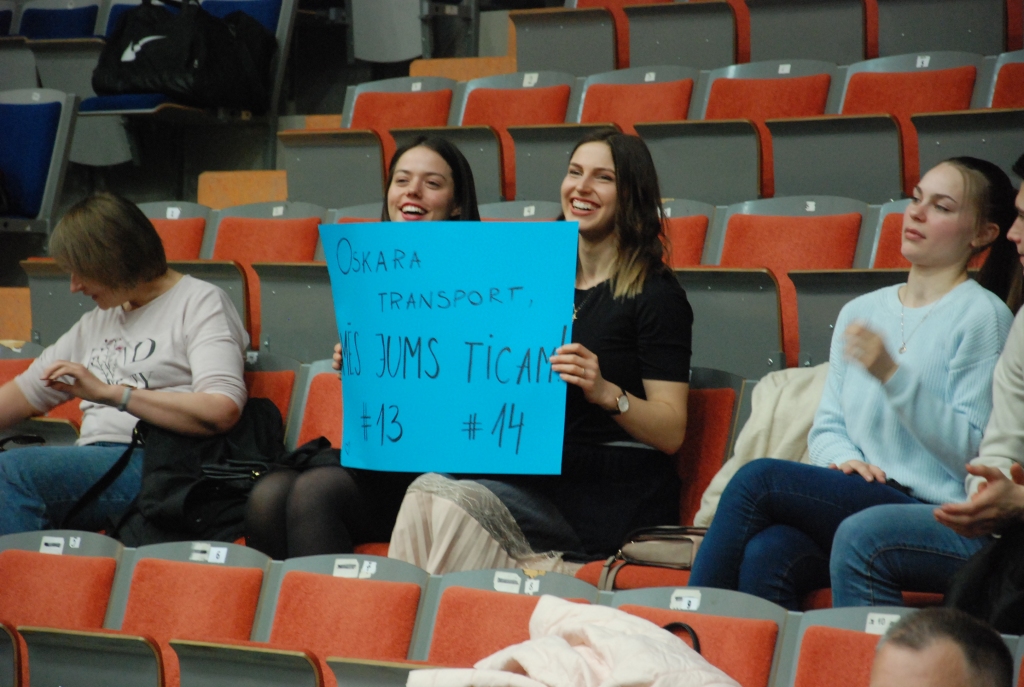 OSKARA
TRANSPORT,
MĒS JUMS TICAM!
#13 #14